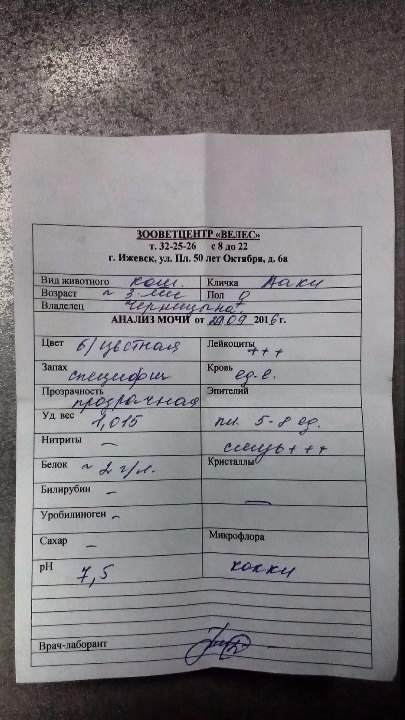 ЗООВЕТЦЕНТР «ВЕЛЕС»
т. 32-25-26 с 8 до 22
г. Ижевск, ул. Пл. 50 лет Октября, д. 6а
Вид животного кош. Кличка
Возраст ~ 3 мес Пол
Владелец Черницына
АНАЛИЗ МОЧИ от 2909 2016 г.
Цвет б/цветная Лейкоциты +++
Запах специфич Кровь ед. е.
Прозрачность прозрачная Эпителий
Уд. вес 1,015 пл. 5-8 ед.
Нитриты – слизь +++
Белок ~ 2 г/л. Кристаллы
Билирубин – —
Уробилиноген –
Сахар – Микрофлора
рН 7,5 кокки
Врач-лаборант